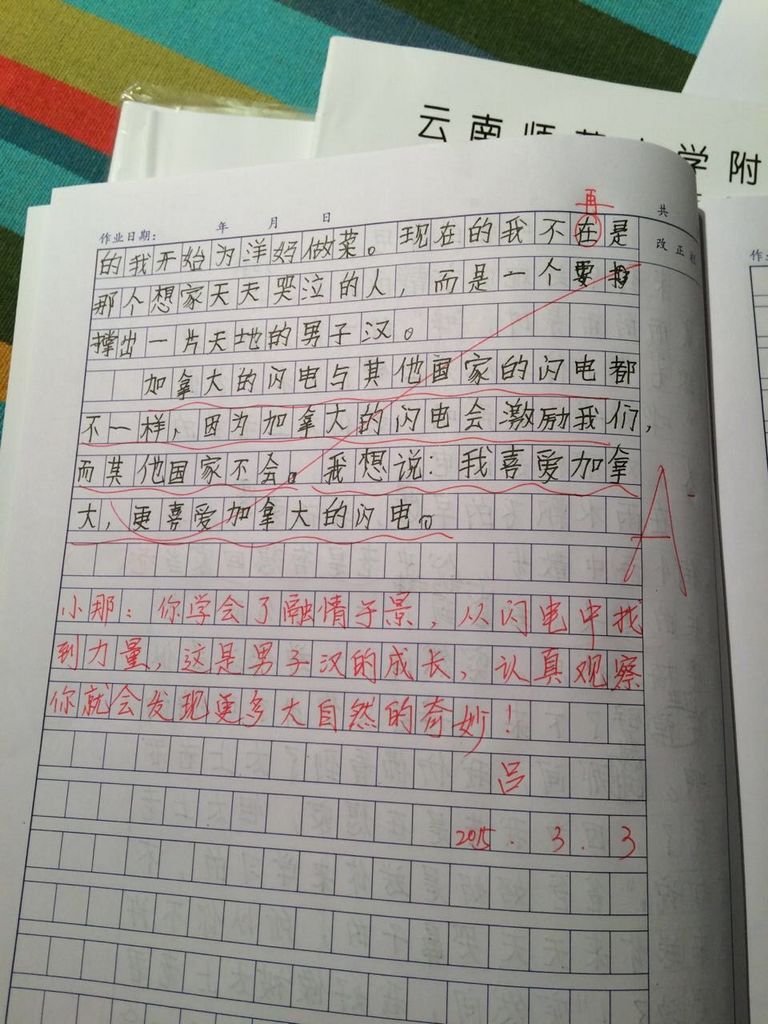 云南师范大学附
作业日期： 年 月 日
共
改正栏
再
的我开始为洋妈做菜。现在的我不在是
那个想家天天哭泣的人，而是一个要
撑出一片天地的男子汉。
加拿大的闪电与其他国家的闪电都
不一样，因为加拿大的闪电会激励我们，
而其他国家不会。我想说：我喜爱加拿
大，更喜爱加拿大的闪电。
A-
小那：你学会了融情于景，从闪电中找
到力量，这是男子汉的成长，认真观察
你就会发现更多大自然的奇妙！
吕
2015.3.3